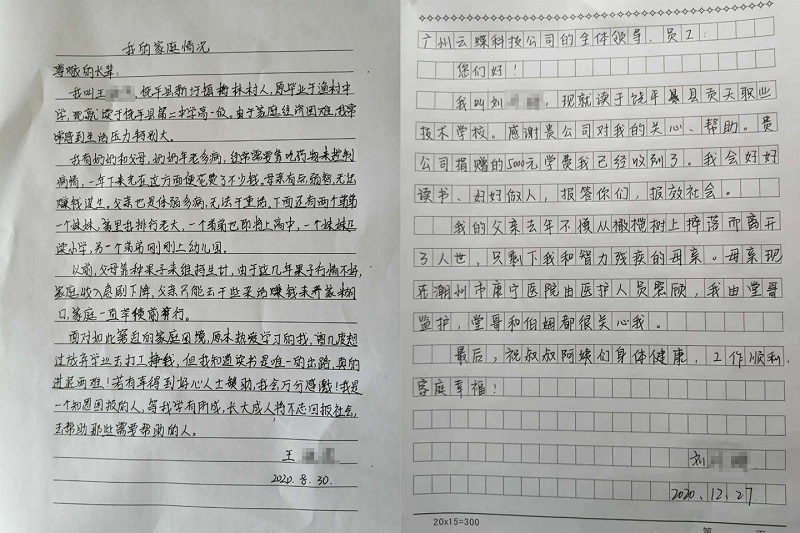 我的家庭情况
尊敬的长辈:
我叫王 ,饶平县新圩镇 林村人,原毕业于渔村中
学,现就读于饶平县第二中学高一级。由于家庭经济困难,我常
常感到生活压力特别大。
我有奶奶和父母,奶奶年老多病,经常需要靠吃药物来控制
病情,一年下来光在这方面便花费了不少钱。母亲有点弱势,无法
赚钱谋生。父亲也是体弱多病,无法干重活。下面还有两个弟弟
一个妹妹,家里我排行老大,一个弟弟也即将上高中,一个妹妹还
读小学,另一个弟弟刚刚上幼儿园。
以前,父母靠种果子来维持生计,由于这几年果子行情不好,
家庭收入急剧下降,父亲只能去干些杂活赚钱来养家糊
口,家庭一直举债前行。
面对如此窘迫的家庭困境,原本热爱学习的我,有几度想
过放弃学业去打工挣钱,但我知道读书是唯一的出路,真的
进退两难!若有幸得到好心人士援助,我会万分感激!我是
一个知恩图报的人,等我学有所成,长大成人将不忘回报社会,
去帮助那些需要帮助的人。
王
2020.8.30.
广州云蝶科技公司的全体领导、员工:
您们好!
我叫刘 ,现就读于饶平县贡天职业
技术学校。感谢贵公司对我的关心、帮助。贵
公司捐赠的5000元学费我已经收到了。我会好好
读书、好好做人,报答你们,报放社会。
我的父亲去年不慎从橄榄树上摔落而离开
了人世,只剩下我和智力残疾的母亲。母亲现
在潮州市康宁医院由医护人员照顾,我由堂哥
监护,堂哥和伯姆都很关心我。
最后,祝叔叔阿姨们身体健康,工作顺利,
家庭幸福!
刘
2020.12.27
20×15=300